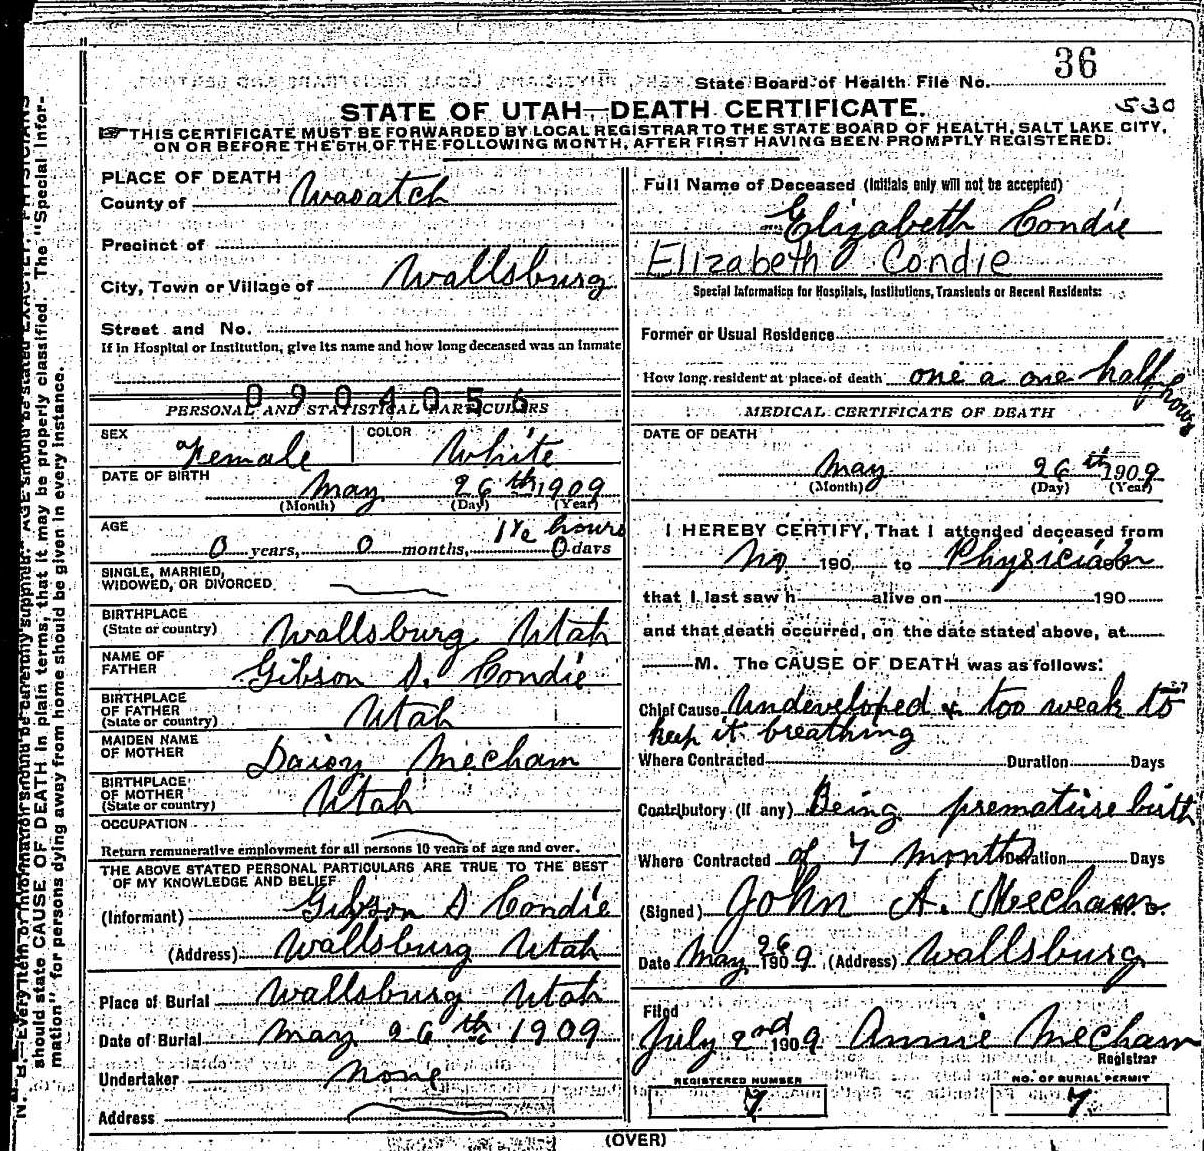 36
State Board of Health File No.
STATE OF UTAH—DEATH CERTIFICATE.
530
THIS CERTIFICATE MUST BE FORWARDED BY LOCAL REGISTRAR TO THE STATE BOARD OF HEALTH, SALT LAKE CITY,
ON OR BEFORE THE 5TH OF THE FOLLOWING MONTH, AFTER FIRST HAVING BEEN PROMPTLY REGISTERED.
PLACE OF DEATH
County of Wasatch
Precinct of
City, Town or Village of Wallsburg
Street and No.
If in Hospital or Institution, give its name and how long deceased was an inmate
0904056
PERSONAL AND STATISTICAL PARTICULARS
SEX Female COLOR White
DATE OF BIRTH
May 26th 1909
(Month) (Day) (Year)
AGE 1½ hours
0 years, 0 months, 0 days
SINGLE, MARRIED,
WIDOWED, OR DIVORCED
BIRTHPLACE
(State or country) Wallsburg Utah
NAME OF
FATHER Gibson S. Condie
BIRTHPLACE
OF FATHER
(State or country) Utah
MAIDEN NAME
OF MOTHER Daisy Mecham
BIRTHPLACE
OF MOTHER
(State or country) Utah
OCCUPATION
Return remunerative employment for all persons 10 years of age and over.
THE ABOVE STATED PERSONAL PARTICULARS ARE TRUE TO THE BEST
OF MY KNOWLEDGE AND BELIEF
(Informant) Gibson S Condie
(Address) Wallsburg Utah
Place of Burial Wallsburg Utah
Date of Burial May 26th 1909
Undertaker None
Address
Full Name of Deceased (Initials only will not be accepted)
Elizabeth Condie
Elizabeth Condie
Special Information for Hospitals, Institutions, Transients or Recent Residents:
Former or Usual Residence
How long resident at place of death one a one half hours
MEDICAL CERTIFICATE OF DEATH
DATE OF DEATH
May 26th 1909
(Month) (Day) (Year)
I HEREBY CERTIFY, That I attended deceased from
No 190 to Physician 190
that I last saw h alive on 190
and that death occurred, on the date stated above, at
M. The CAUSE OF DEATH was as follows:
Chief Cause Undeveloped & too weak to
keep it breathing
Where Contracted Duration Days
Contributory (if any) Being premature birth
Where Contracted of 7 months Duration Days
(Signed) John A. Mecham M. D.
Date May 26 1909 (Address) Wallsburg
Filed
July 2nd 1909 Annie Mecham
Registrar
REGISTERED NUMBER
7
NO. OF BURIAL PERMIT
7
(OVER)
N. B.—Every item of information should be carefully supplied. AGE should be stated EXACTLY. PHYSICIANS
should state CAUSE OF DEATH in plain terms, that it may be properly classified. The "Special Infor-
mation" for persons dying away from home should be given in every instance.